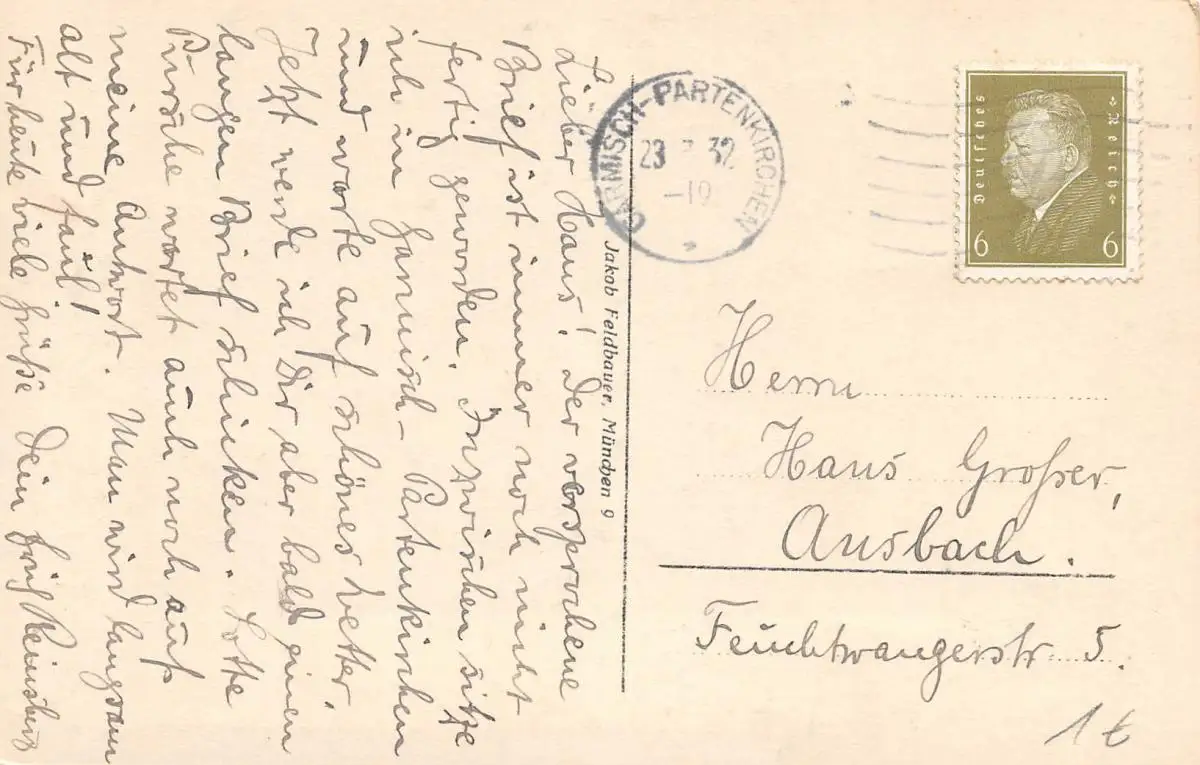 Lieber Hans! Der versprochene
Brief ist immer noch nicht
fertig geworden. Inzwischen sitze
ich in Garmisch-Partenkirchen
und warte auf schönes Wetter.
Jetzt werde ich Dir aber bald einen
langen Brief schicken. Lotte
Pirsche wartet auch noch auf
meine Antwort. Man wird langsam
alt und faul!
Für heute viele Grüße Dein
Jakob Feldbauer, München 9
GARMISCH-PARTENKIRCHEN
23 32
-19
Deutsches Reich
6 6
Herrn
Hans Großer,
Ansbach.
Feuchtwangerstr 5.
1 €